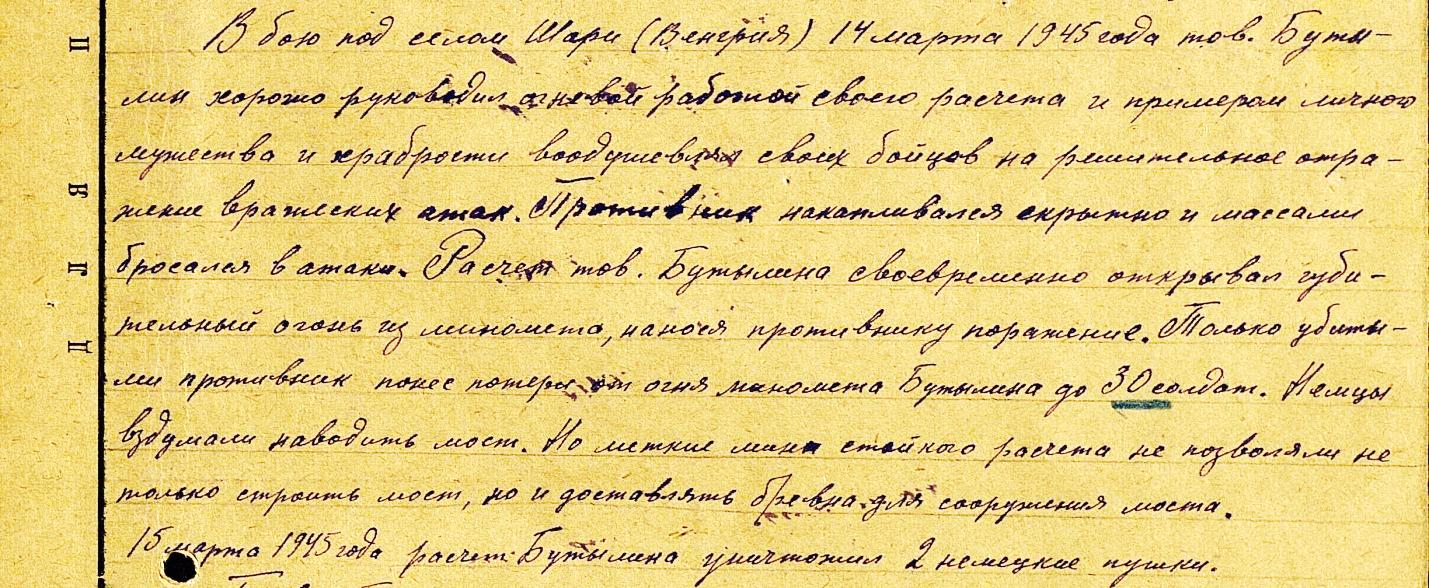 В бою под селом Шари (Венгрия) 14 марта 1945 года тов. Буты-
лин хорошо руководил огневой работой своего расчета и примером личного
мужества и храбрости воодушевлял своих бойцов на решительное отра-
жение вражеских атак. Противник накапливался скрытно и массами
бросался в атаки. Расчет тов. Бутылина своевременно открывал губи-
тельный огонь из миномета, нанося противнику поражение. Только убиты-
ми противник понес потери от огня миномета Бутылина до 30 солдат. Немцы
вздумали наводить мост. Но меткие мины стойкого расчета не позволяли не
только строить мост, но и доставлять бревна для сооружения моста.
15 марта 1945 года расчет Бутылина уничтожил 2 немецкие пушки.
Д Л Я П